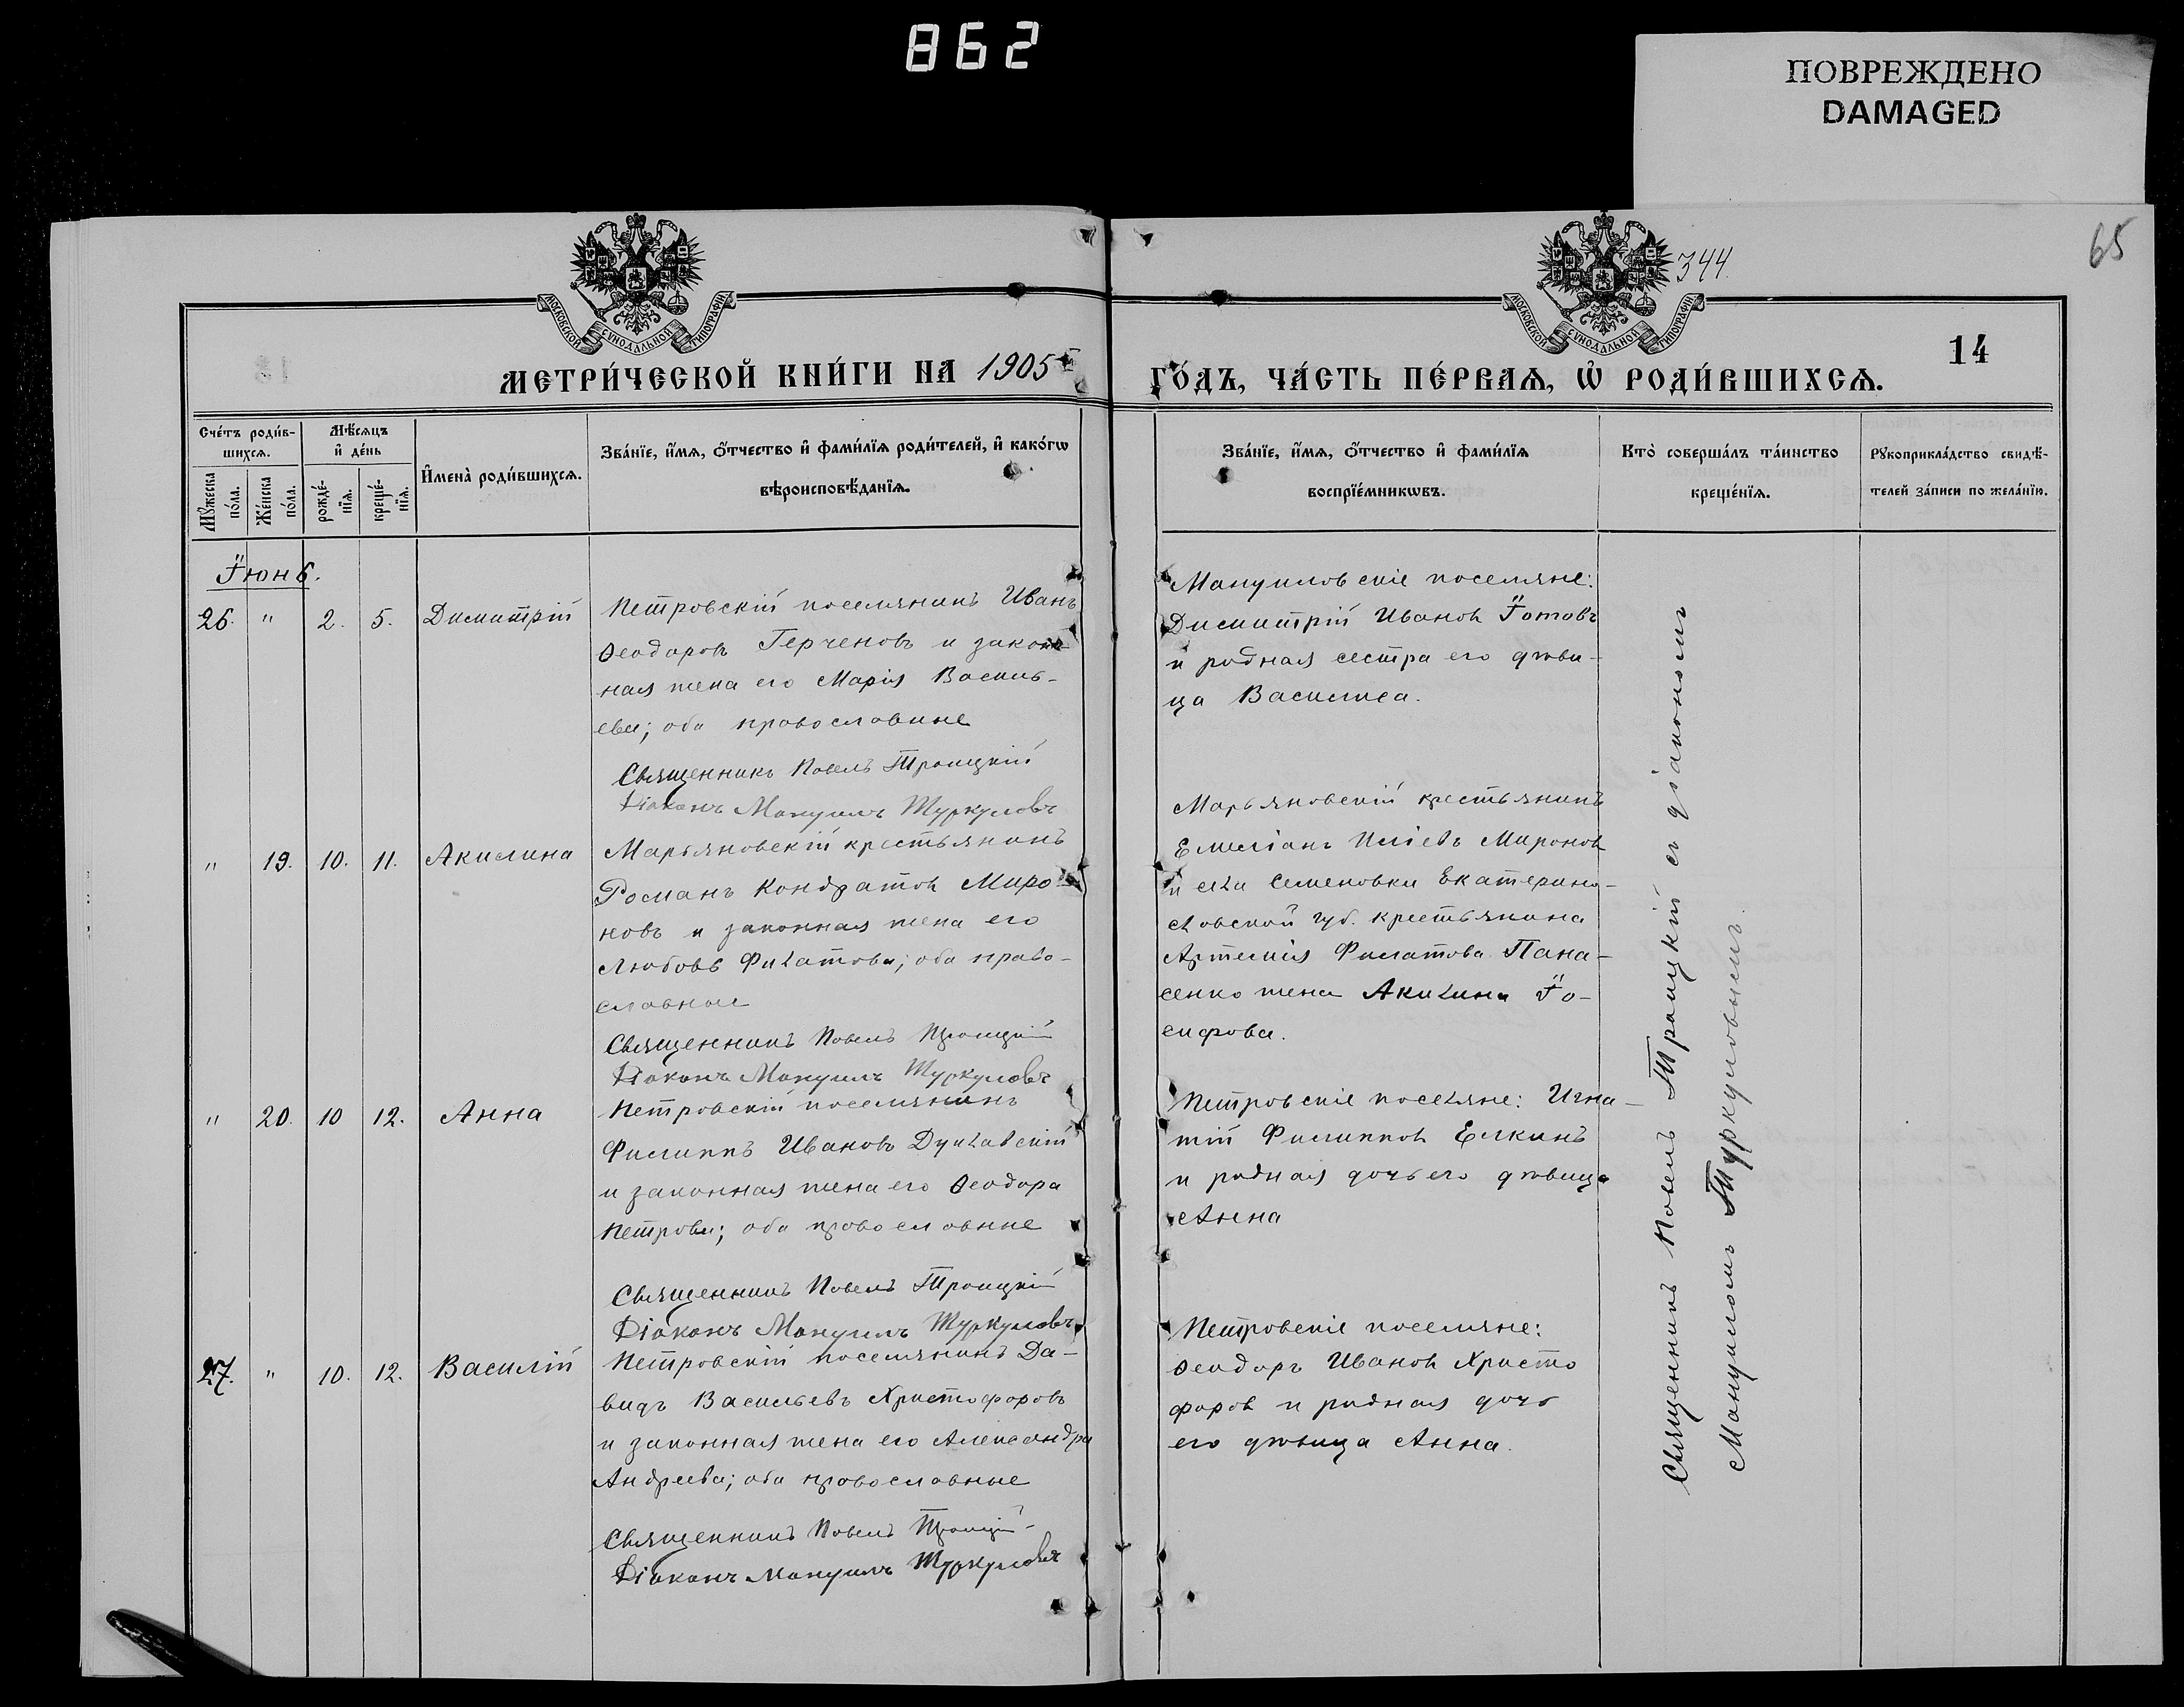 862
ПОВРЕЖДЕНО
DAMAGED
65
344.
14
МОСКОВСКОЙ СѴНОДАЛЬНОЙ ТИПОГРАФІИ
МОСКОВСКОЙ СѴНОДАЛЬНОЙ ТИПОГРАФІИ
МЕТРИ́ЧЕСКОЙ КНИ́ГИ НА 1905 й
ГО́ДЪ, ЧА́СТЬ ПЕ́РВАѦ, Ѡ҆ РОДИ́ВШИХСѦ.
Сче́тъ роди́в-
шихсѧ.
Мꙋ́жеска
по́ла.
Же́нска
по́ла.
Мѣ́сѧцъ
и҆ де́нь
рожде́-
нїѧ.
креще́-
нїѧ.
И҆мена̀ роди́вшихсѧ.
Зва́нїе, и҆́мѧ, ѻ҆́тчество и҆ фами́лїѧ роди́телей, и҆ како́гѡ
вѣроисповѣ́данїѧ.
Зва́нїе, и҆́мѧ, ѻ҆́тчество и҆ фами́лїѧ
воспрїе́мникѡвъ.
Кто̀ соверша́лъ та́инство
креще́нїѧ.
Рꙋкоприкла́дство свидѣ́-
телей за́писи по жела́нїю.
Іюнь.
26. " 2. 5. Димитрій
Петровскій поселянинъ Иванъ
Ѳеодоровъ Герченовъ и закон-
ная жена его Марія Василь-
ева; оба православные
Священникъ Павелъ Троицкій
Діаконъ Мануилъ Туркуловъ
Мануиловскіе поселяне:
Димитрій Ивановъ Іотовъ
и родная сестра его дѣви-
ца Василиса.
" 19. 10. 11. Акилина
Марьяновскій крестьянинъ
Романъ Кондратовъ Миро-
новъ и законная жена его
Любовь Филатова; оба право-
славные
Священникъ Павелъ Троицкій
Діаконъ Мануилъ Туркуловъ
Марьяновскій крестьянинъ
Емеліанъ Иліевъ Мироновъ
и села Семеновки Екатерино-
славской губ. крестьянина
Артемія Филатова Пана-
сенко жена Акилина Іо-
сифова.
" 20. 10 12. Анна
Петровскій поселянинъ
Филиппъ Ивановъ Дуклавскій
и законная жена его Ѳеодора
Петрова; оба православные
Священникъ Павелъ Троицкій
Діаконъ Мануилъ Туркуловъ
Петровскіе поселяне: Игна-
тій Филипповъ Елкинъ
и родная дочь его дѣвица
Анна
27. " 10. 12. Василій
Петровскій поселянинъ Да-
видъ Васильевъ Христофоровъ
и законная жена его Александра
Андреева; оба православные
Священникъ Павелъ Троицкій
Діаконъ Мануилъ Туркуловъ
Петровскіе поселяне:
Ѳеодоръ Ивановъ Христо
форовъ и родная дочь
его дѣвица Анна.
Священникъ Павелъ Троицкій съ діакономъ
Мануиломъ Туркуловымъ.